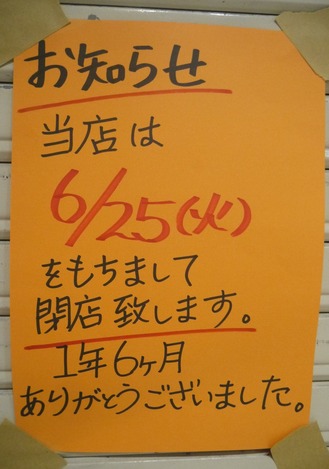 お知らせ
当店は
6/25(火)
をもちまして
閉店致します。
1年6ヶ月
ありがとうございました。